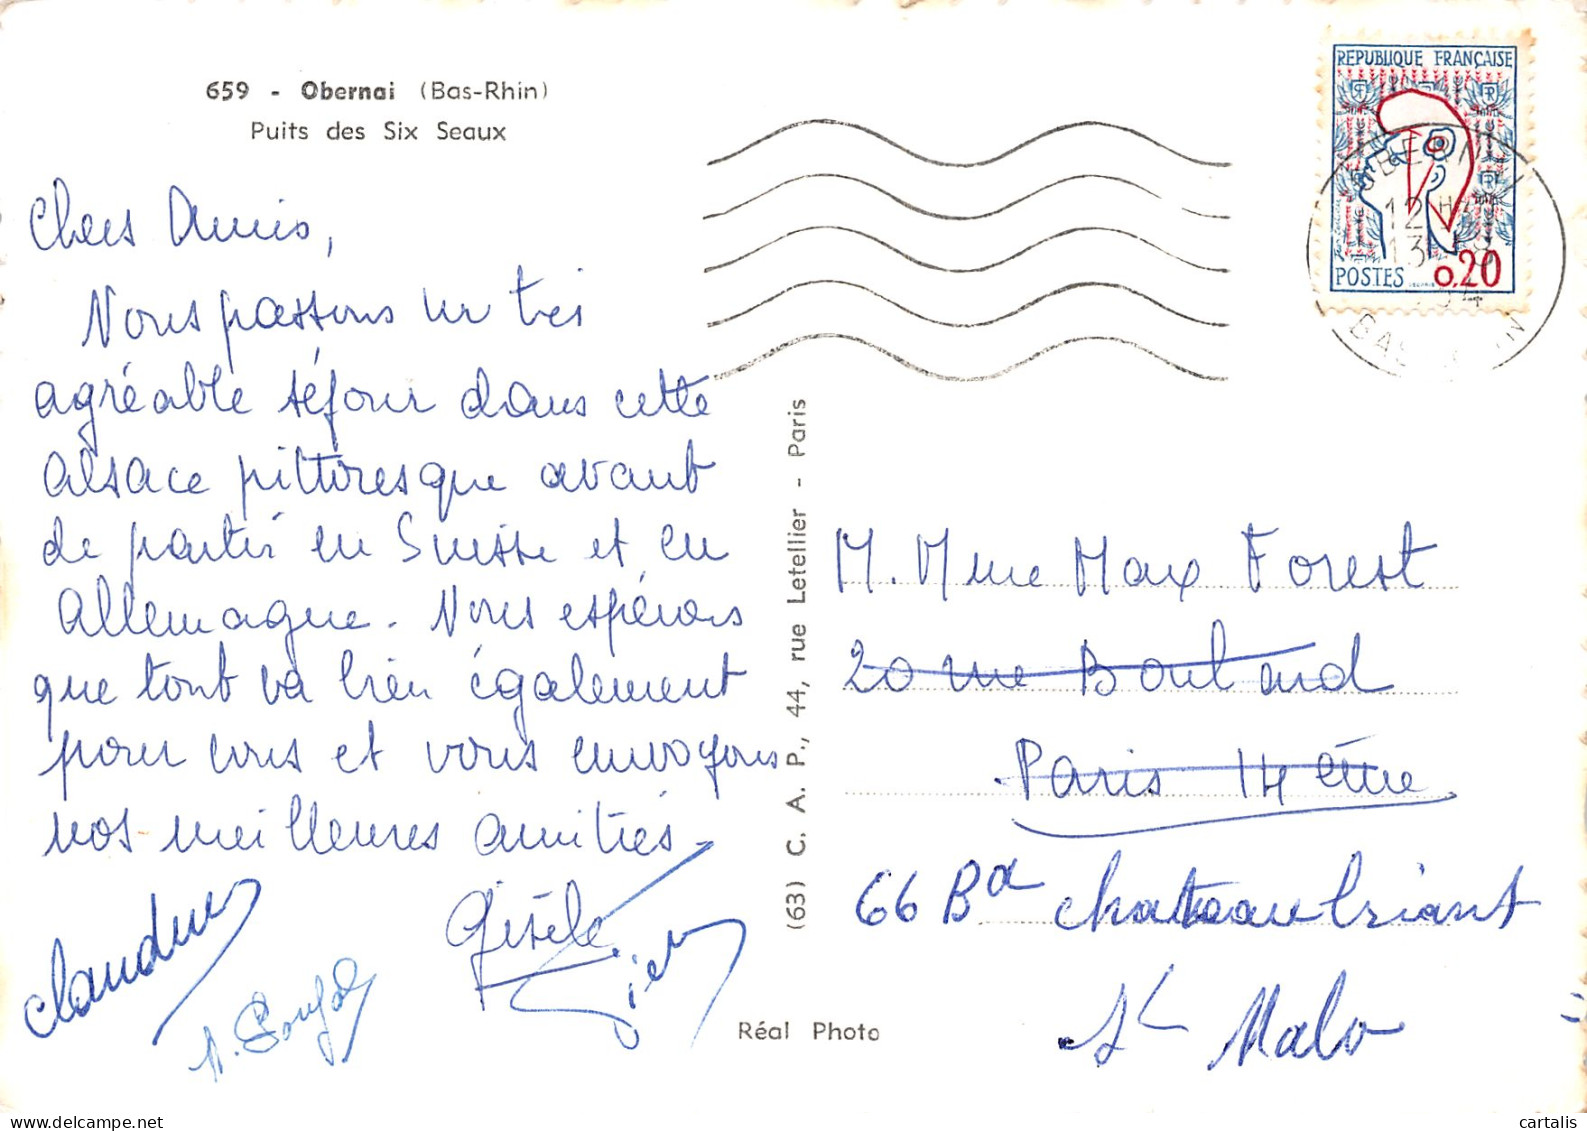 659 - Obernai (Bas-Rhin)
Puits des Six Seaux
Chers Amis,
Nous passons un très
agréable séjour dans cette
Alsace pittoresque avant
de partir en Suisse et en
Allemagne. Nous espérons
que tout va bien également
pour vous et vous envoyons
nos meilleures amitiés.
Claudine
Gisèle
(63) C. A. P., 44, rue Letellier - Paris
Réal Photo
REPUBLIQUE FRANÇAISE
POSTES 0,20
12 H
13 - 8
BAS RHIN
M. Mme Max Forest
20 rue Boulard
Paris 14ème
66 Bd Chateaubriant
St Malo
cartalis